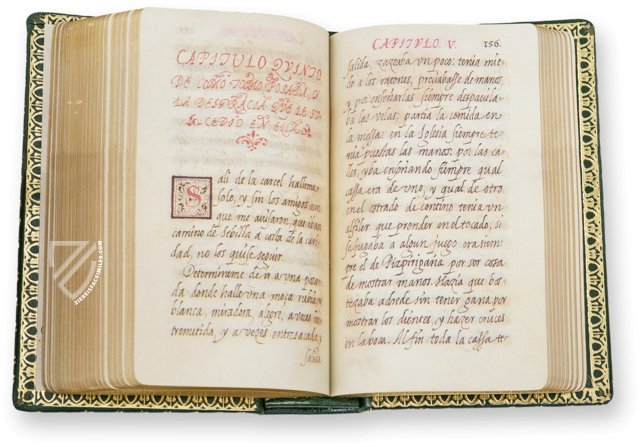 CAPITULO QVINTO
DE COMO TOMO POSADA, Y
LA DESGRACIA QVE LE SV-
CEDIO EN ELLA.
Sali de la carcel halleme
solo, y sin los amigos aun
que me auisaron que iban
camino de Sebilla a costa de la cari
dad, no los quise seguir.
Determineme de ir a una posa
da donde halle una moça rubia, y
blanca, miradora, alegre, a ueces en
tremetida, y a vezes entresacada, y
salida.
CAPITULO. V. 156.
salida, zazeaba un poco: tenia mie
do a los ratones, preciabasse de manos
y por enseñarlas siempre despauila
ba las velas, partia la comida en
la messa: en la Iglesia siempre te
nia puestas las manos, por las ca
lles, yba enseñando siempre qual
cassa era de uno, y qual de otro
en el estrado de contino tenia un
alfiler que prender en el tocado, si
se jugaba a algun juego era siem
pre el de Pizpirigaña por ser cosa
de mostrar manos. Hazia que bo
tezaba adrede sin tener gana por
mostrar los dientes, y hazer cruces
en la boca. Al fin toda la cassa te
ZIEREISFACSIMILES.COM